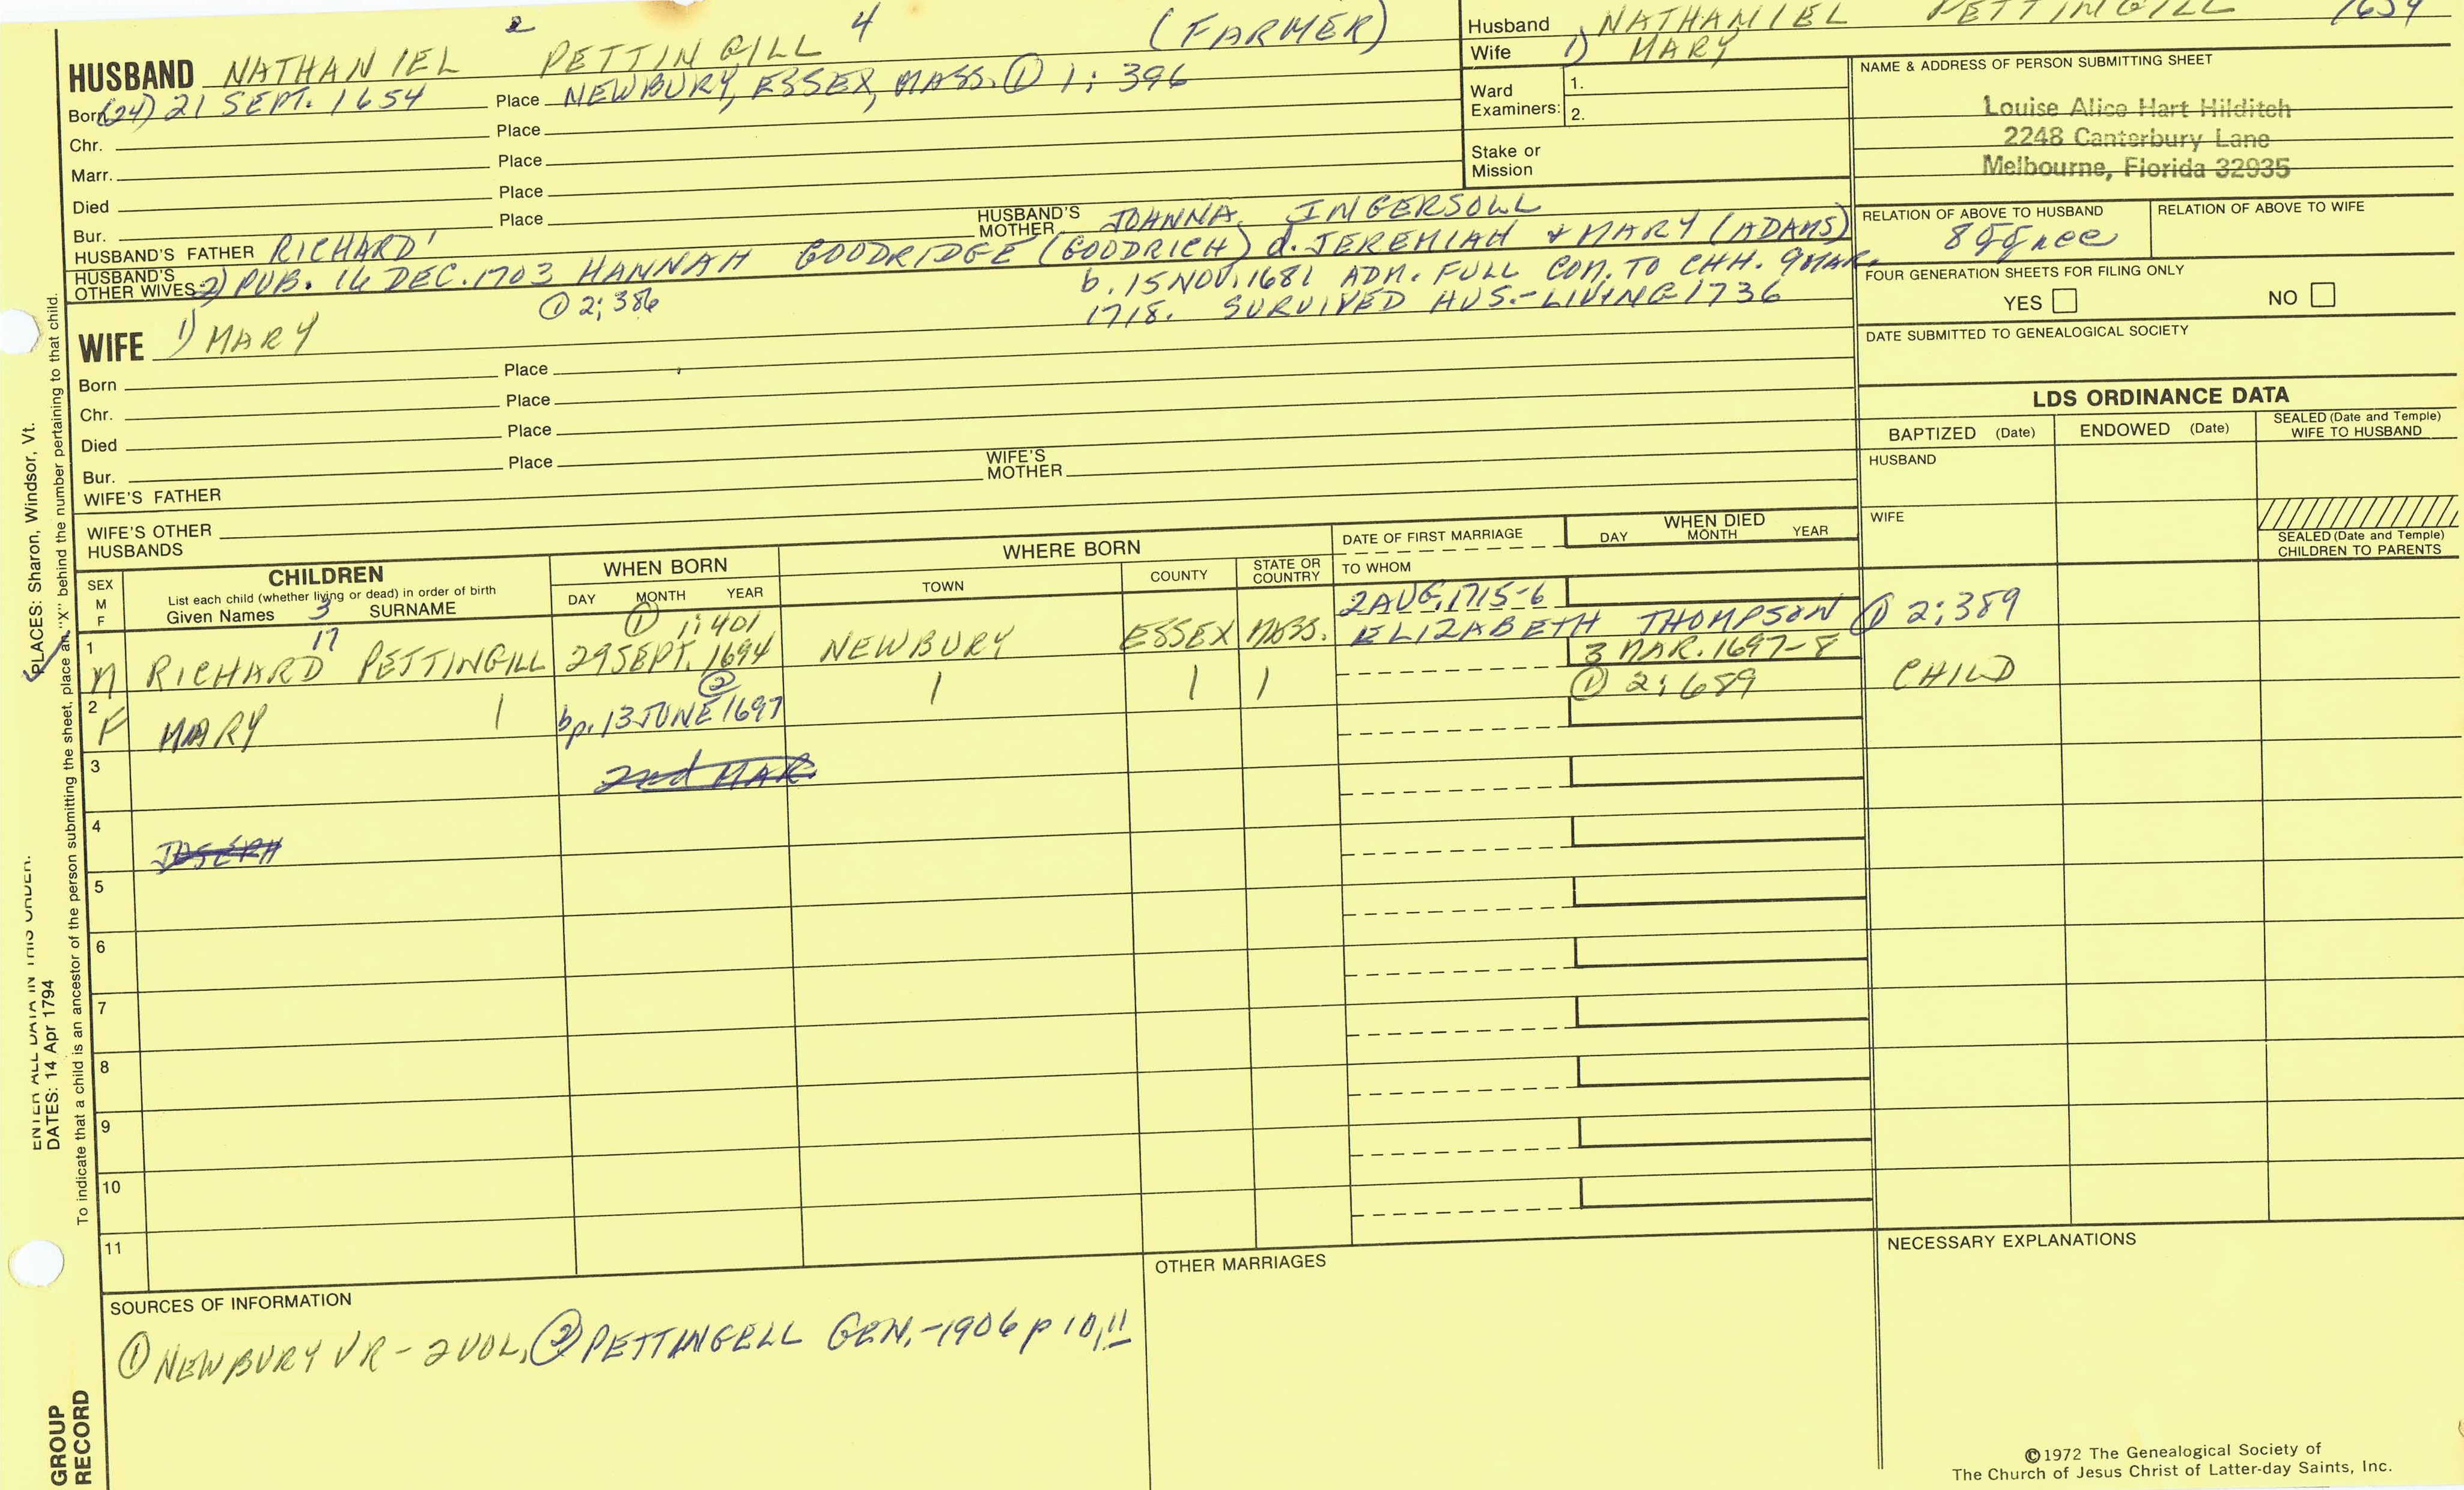 HUSBAND NATHANIEL 2 PETTINGILL 4 (FARMER)
Born (24) 21 SEPT. 1654 Place NEWBURY, ESSEX, MASS. ① 1: 396
Chr. Place
Marr. Place
Died Place
Bur. Place
HUSBAND'S FATHER RICHARD' HUSBAND'S MOTHER JOHNNA. INGERSOLL
HUSBAND'S OTHER WIVES 2) PUB. 16 DEC. 1703 HANNAH GOODRIDGE (GOODRICH) d. JEREMIAH & MARY (ADAMS)
① 2: 386 b. 15 NOV. 1681 ADM. FULL COM. TO CHH. 9 MAR.
1718. SURVIVED HUS. - LIVING 1736
WIFE 1) MARY
Born Place
Chr. Place
Died Place
Bur. Place
WIFE'S FATHER WIFE'S MOTHER
WIFE'S OTHER HUSBANDS
Husband NATHANIEL PETTINGILL 1654
Wife 1) MARY
Ward Examiners: 1.
2.
Stake or Mission
NAME & ADDRESS OF PERSON SUBMITTING SHEET
Louise Alice Hart Hilditch
2248 Canterbury Lane
Melbourne, Florida 32935
RELATION OF ABOVE TO HUSBAND RELATION OF ABOVE TO WIFE
8 GG nee
FOUR GENERATION SHEETS FOR FILING ONLY
YES NO
DATE SUBMITTED TO GENEALOGICAL SOCIETY
LDS ORDINANCE DATA
BAPTIZED (Date) ENDOWED (Date) SEALED (Date and Temple) WIFE TO HUSBAND
HUSBAND
WIFE
SEALED (Date and Temple) CHILDREN TO PARENTS
SEX M F
CHILDREN
List each child (whether living or dead) in order of birth
Given Names 3 SURNAME
WHEN BORN
DAY MONTH YEAR
WHERE BORN
TOWN COUNTY STATE OR COUNTRY
DATE OF FIRST MARRIAGE
TO WHOM
WHEN DIED
DAY MONTH YEAR
1 M RICHARD 17 PETTINGILL ① 1: 401 29 SEPT. 1694 NEWBURY ESSEX MASS. 2 AUG. 1715-6 ELIZABETH THOMPSON ① 2: 389
2 F MARY | ② bp. 13 JUNE 1697 | | | 3 MAR. 1697-8 ① 2: 689 CHILD
3 2nd MAR.
4 JOSEPH
5
6
7
8
9
10
11
SOURCES OF INFORMATION
① NEWBURY VR - 2 VOL, ② PETTINGELL GEN, - 1906 p 10, 11
OTHER MARRIAGES
NECESSARY EXPLANATIONS
©1972 The Genealogical Society of
The Church of Jesus Christ of Latter-day Saints, Inc.
ENTER ALL DATA IN THIS ORDER:
PLACES: Sharon, Windsor, Vt.
DATES: 14 Apr 1794
To indicate that a child is an ancestor of the person submitting the sheet, place an "X" behind the number pertaining to that child.
GROUP
RECORD